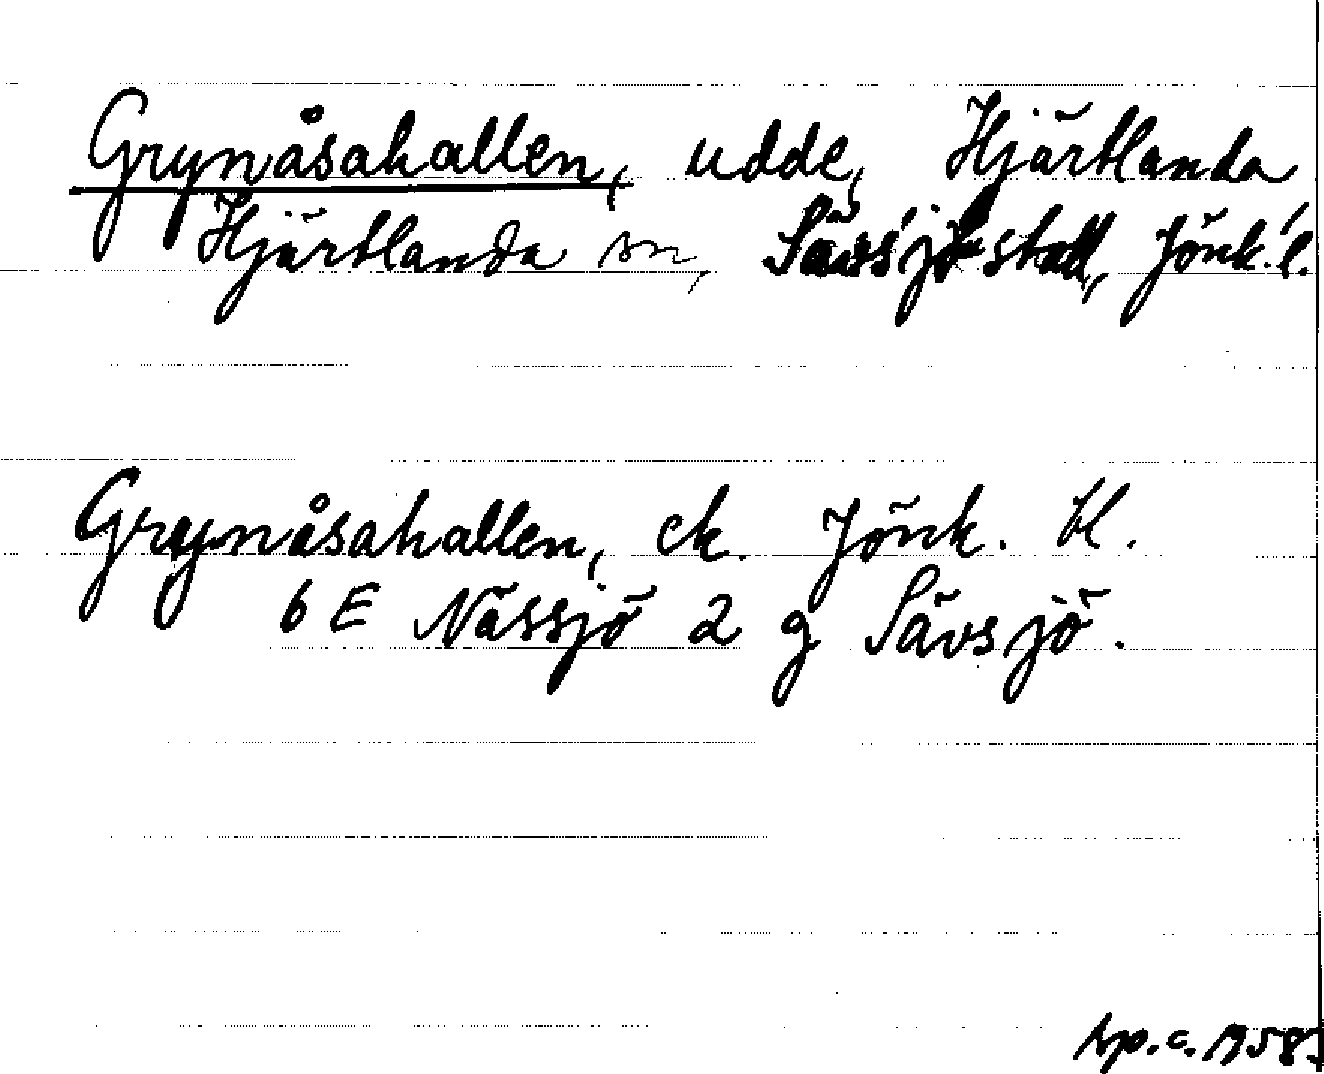 Grynåsahallen, udde, Hjärtlanda
Hjärtlanda sn, Sävsjö stad, Jönk. l.
Grynåsahallen, ek. Jönk. bl.
6 E Nässjö 2 g Sävsjö.
tp. c. 1958